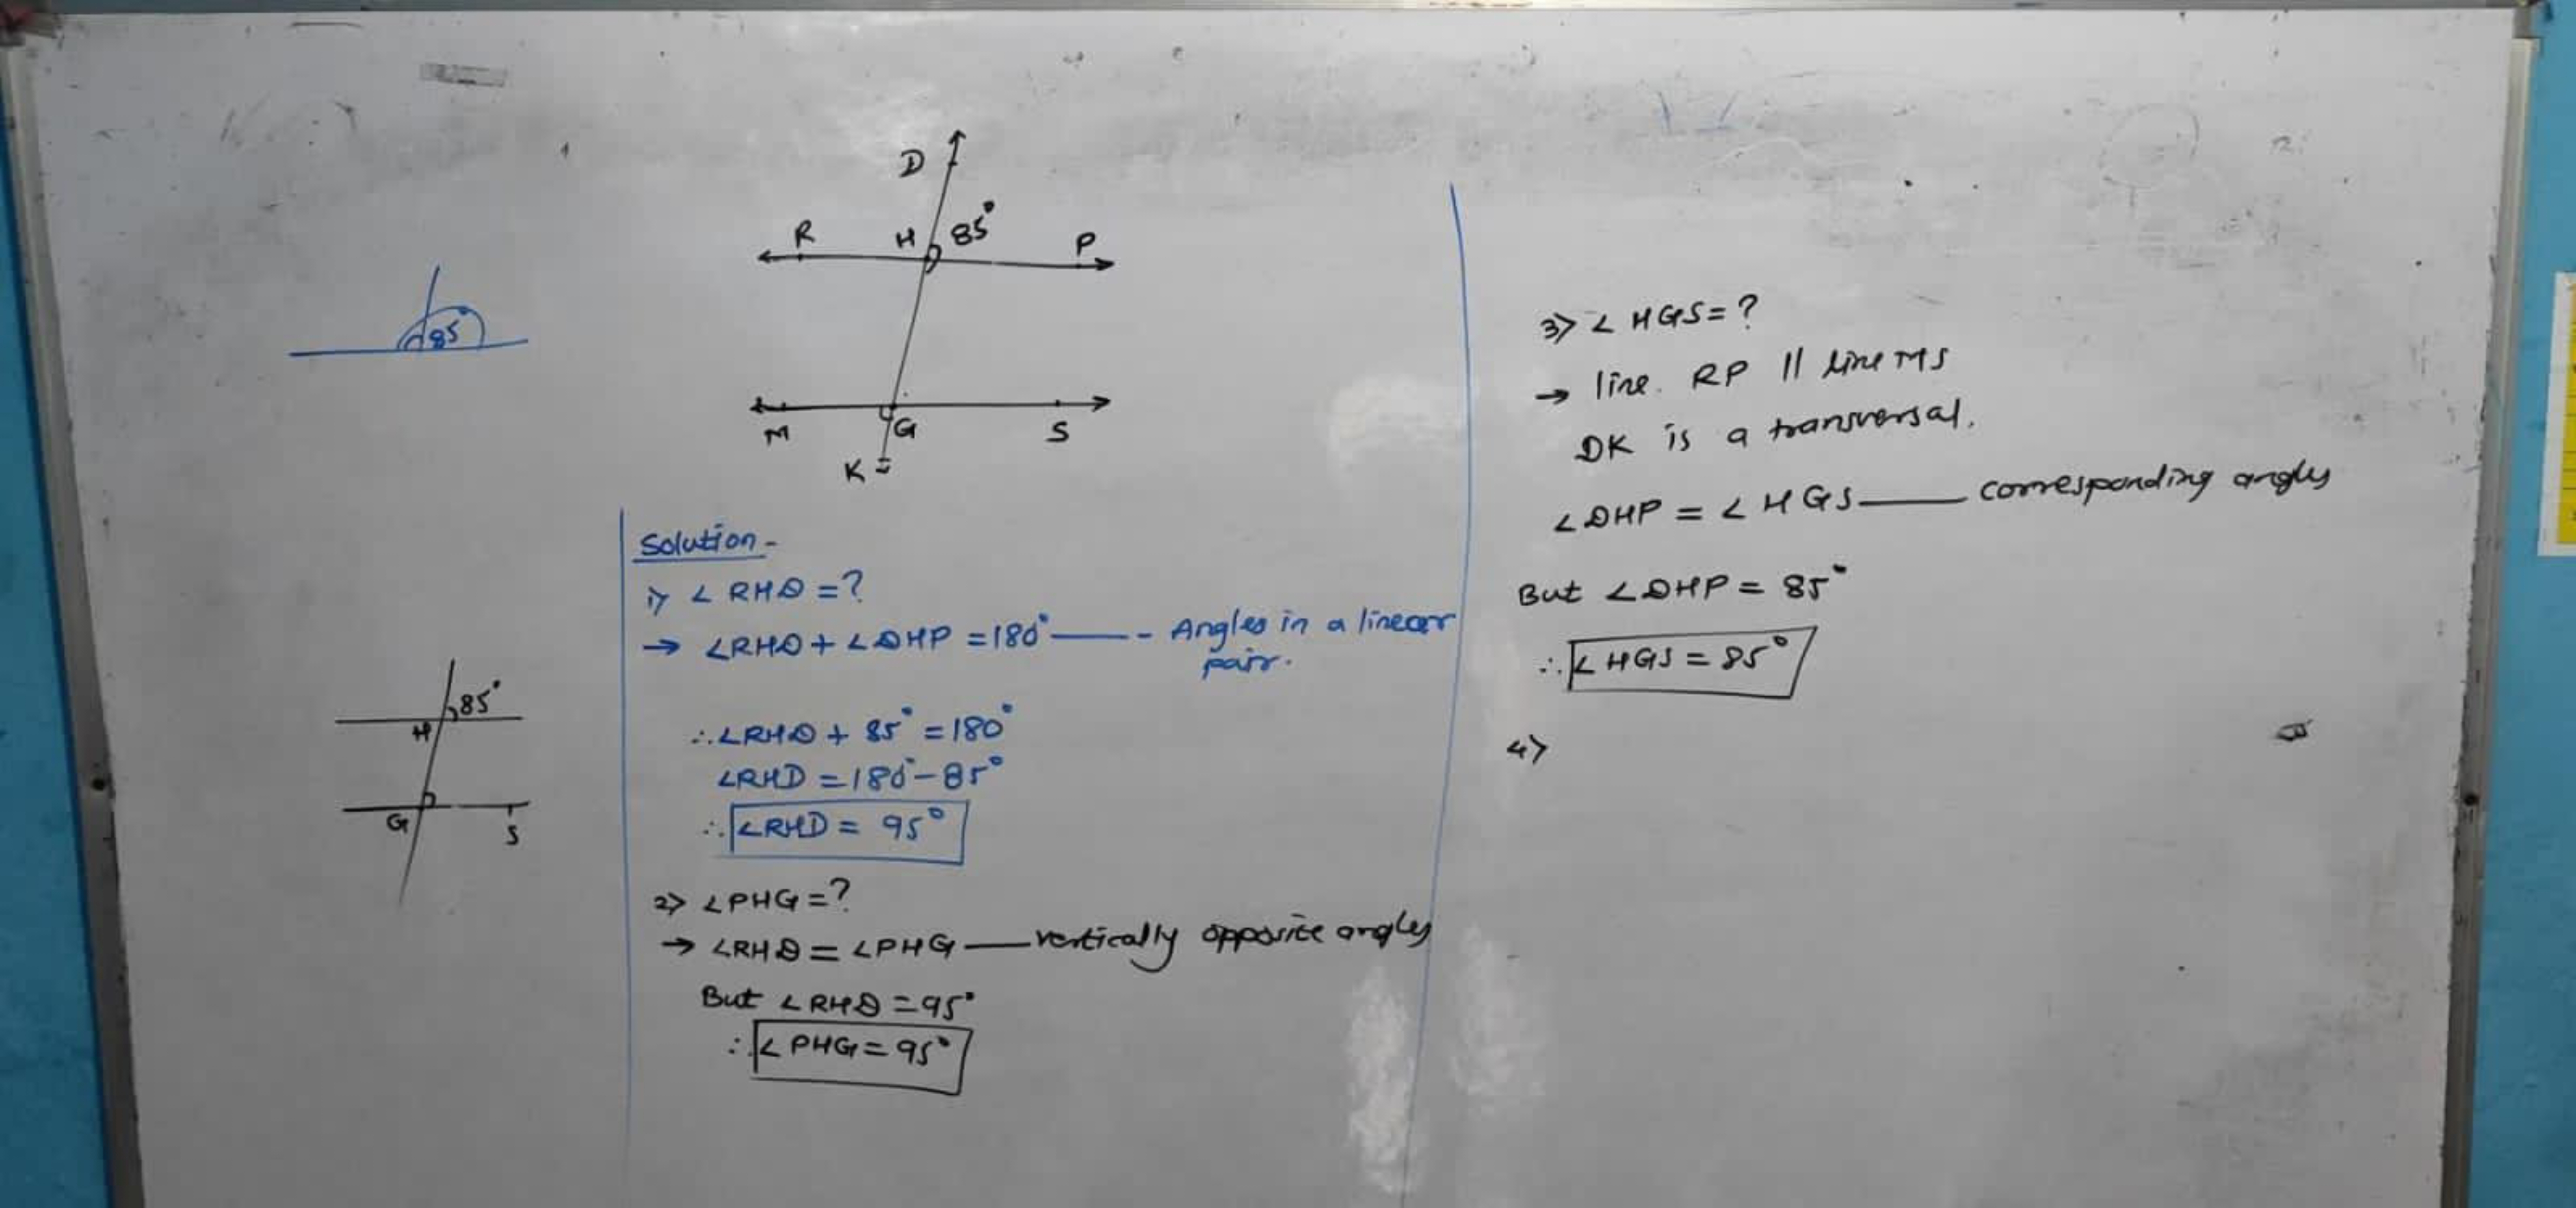 D
R H 85° P
M G S
K
85°
85°
H
G S
Solution -
1) ∠RHD = ?
→ ∠RHD + ∠DHP = 180° —— - Angles in a linear
pair.
∴ ∠RHD + 85° = 180°
∠RHD = 180° - 85°
∴ ∠RHD = 95°
2) ∠PHG = ?
→ ∠RHD = ∠PHG —— vertically opposite angles
But ∠RHD = 95°
∴ ∠PHG = 95°
3) ∠HGS = ?
→ line. RP || line MS
DK is a transversal.
∠DHP = ∠HGS —— corresponding angles
But ∠DHP = 85°
∴ ∠HGS = 85°
4)